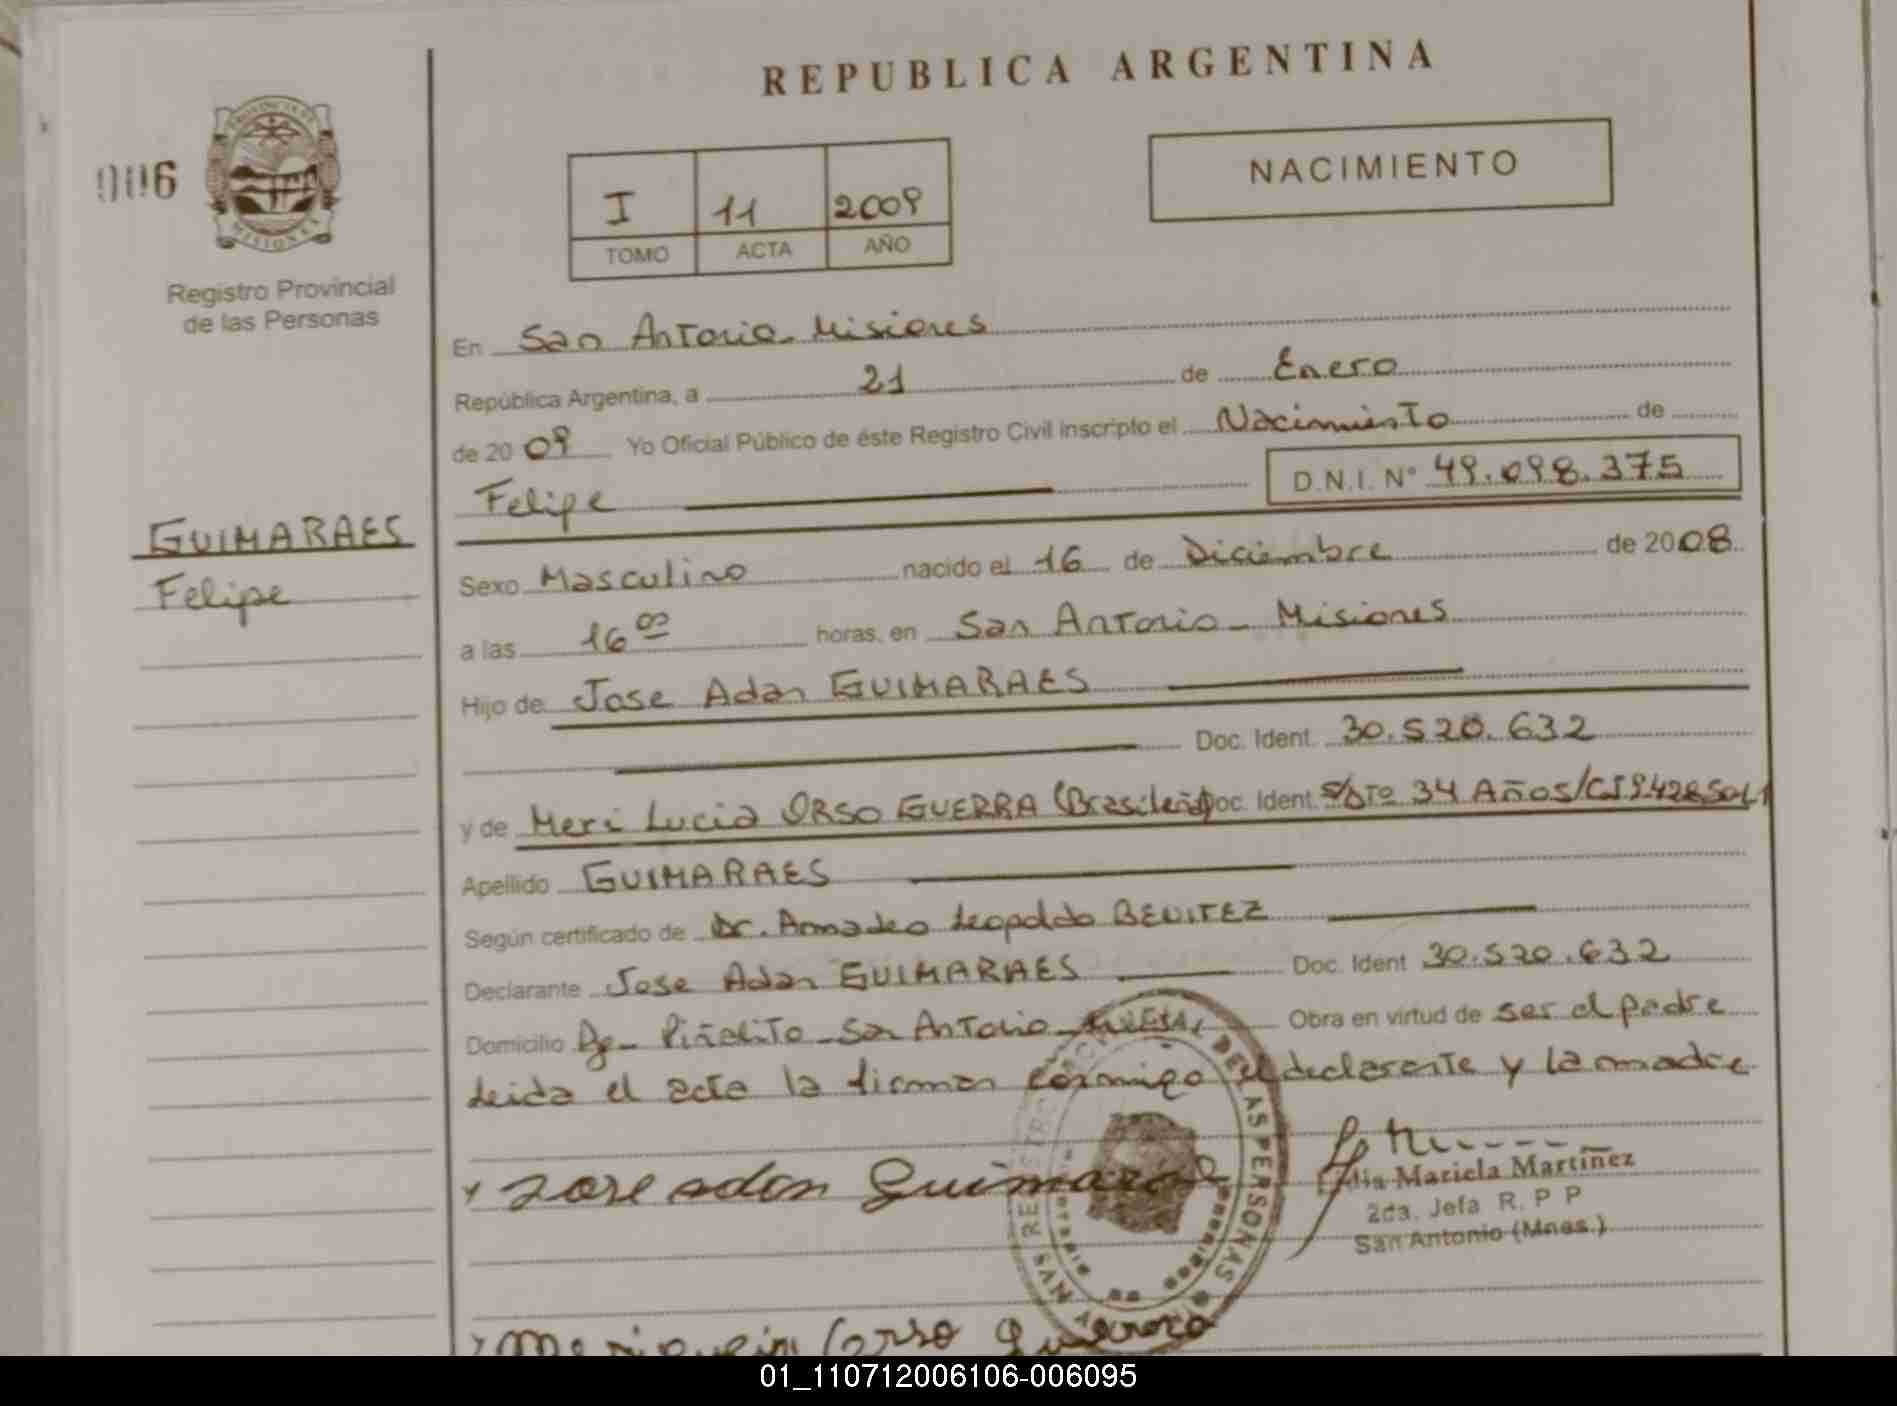 REPUBLICA ARGENTINA
006
PROVINCIA DE
MISIONES
Registro Provincial
de las Personas
I 11 2009
TOMO ACTA AÑO
NACIMIENTO
En San Antonio - Misiones
República Argentina, a 21 de Enero
de 2009 Yo Oficial Público de éste Registro Civil inscripto el Nacimiento de
Felipe D.N.I. N° 49.098.375
GUIMARAES
Felipe
Sexo Masculino nacido el 16 de Diciembre de 2008
a las 16 00 horas, en San Antonio - Misiones
Hijo de Jose Adan GUIMARAES
Doc. Ident. 30.520.632
y de Meri Lucia ORSO GUERRA (Brasileña) Doc. Ident. s/Dto 34 Años/
Apellido GUIMARAES
Según certificado de Dr. Amadeo Leopoldo BENITEZ
Declarante Jose Adan GUIMARAES Doc. Ident 30.520.632
Domicilio Piñalito - San Antonio - Obra en virtud de ser el padre
Leida el acta la firman conmigo el declarante y la madre
Jose adan Guimaraes
Mariela Martinez
2da. Jefa R. P P
San Antonio (Mnes.)
DE LAS PERSONAS
orso Guerra
01_110712006106-006095